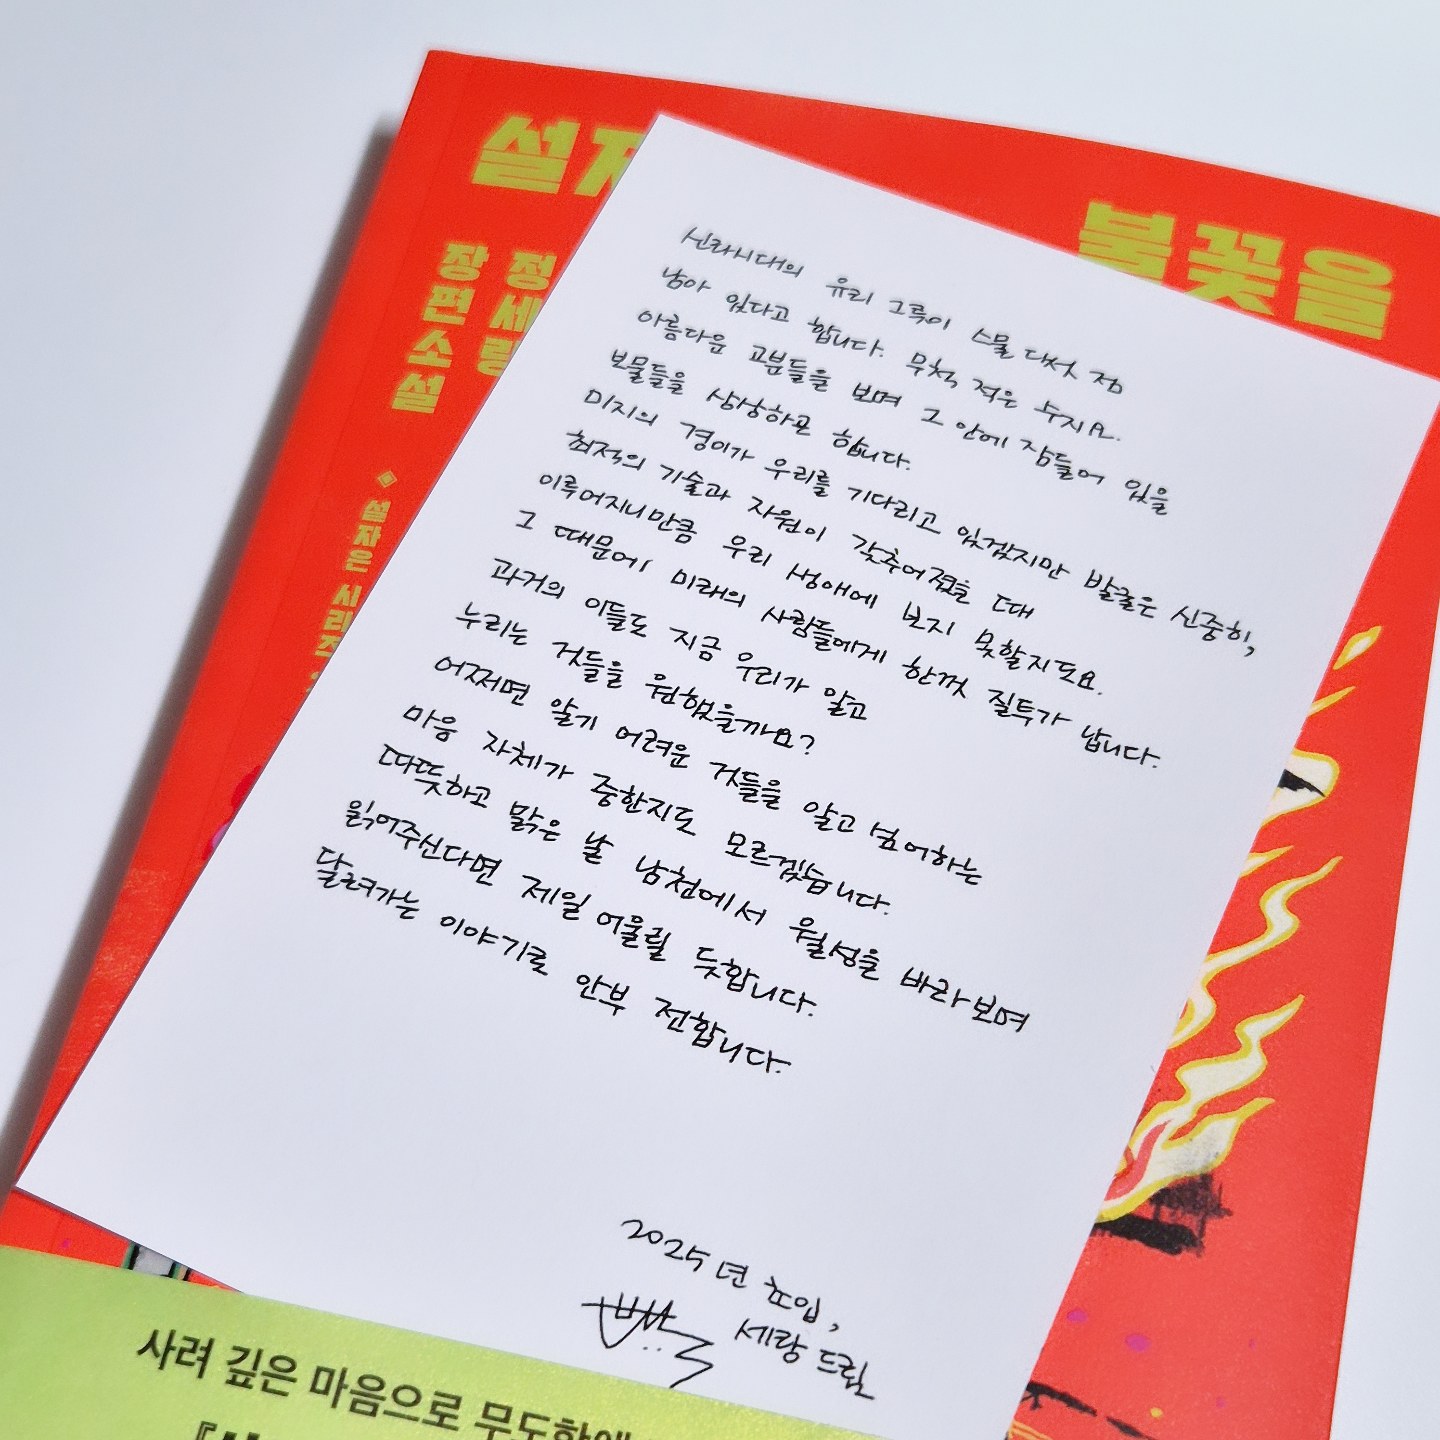 설자
불꽃을
정세랑
장편소설
설자은 시리즈
신라시대의 유리 그릇이 스물 다섯 점
남아 있다고 합니다. 무척 적은 수지요.
아름다운 고분들을 보며 그 안에 잠들어 있을
보물들을 상상하곤 합니다.
미지의 경이가 우리를 기다리고 있겠지만 발굴은 신중히,
최적의 기술과 자원이 갖추어졌을 때
이루어지니만큼 우리 생애에 보지 못할지도요.
그 때문에 미래의 사람들에게 한껏 질투가 납니다.
과거의 이들도 지금 우리가 알고
누리는 것들을 원했을까요?
어쩌면 알기 어려운 것들을 알고 넘어하는
마음 자체가 중한지도 모르겠습니다.
따뜻하고 맑은 날 남천에서 월성을 바라보며
읽어주신다면 제일 어울릴 듯합니다.
달려가는 이야기로 안부 전합니다.
2025년 초입,
세랑 드림
사려 깊은 마음으로 무도한